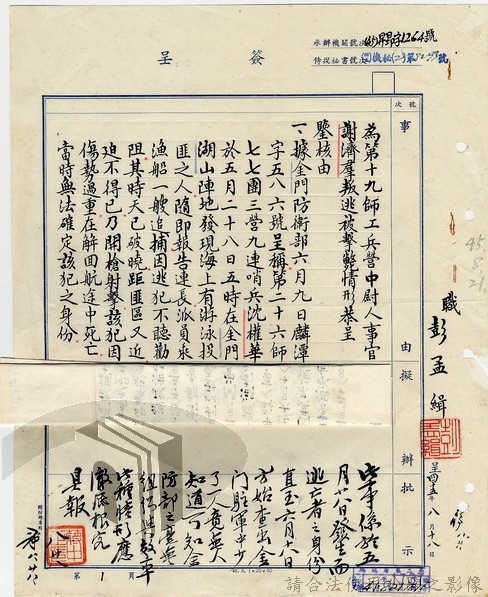 承辦機關號次
侍從秘書號次
簽呈
次號
事由擬辦批示
職彭孟緝
呈四五年八月十八
45.8.21.
為第十九師工兵營中尉人事官
謝濟羣叛逃被擊斃情形恭呈
鑒核由
一、據金門防衛部六月九日麟潭
字五八六號呈稱第二十六師
七七團三營九連哨兵沈權華
於五月二十八日五時在金門
湖山陣地發現海上有游泳投
匪之人隨即報告連長派員乘
漁船一艘追捕因逃犯不聽勸
阻其時天已破曉距匪區又近
迫不得已乃開槍射擊該犯因
傷勢過重在解回航途中死亡
當時無法確定該犯之身份
此事係於五
月廿八日發生而
逃亡者之身份
直至六月六日
方始查出金
門駐軍中少
了一人竟無人
知道可知金
防部之
此種情形應
徹底根究
具報
第1頁
請合法使用之影像